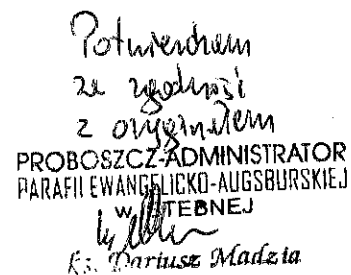 Potwierdzam
za zgodność
z oryginałem
PROBOSZCZ-ADMINISTRATOR
PARAFII EWANGELICKO-AUGSBURSKIEJ
W ISTEBNEJ
Ks. Dariusz Madzia